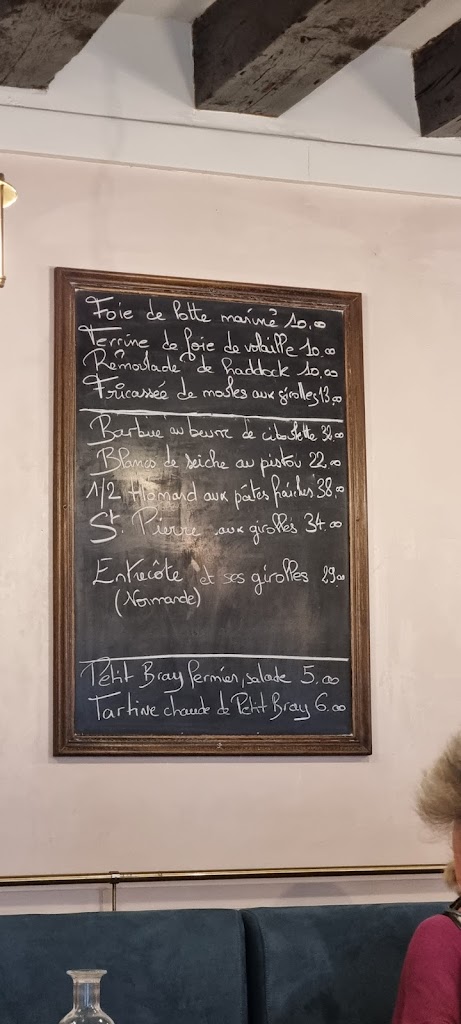 Foie de lotte mariné 10.00
Terrine de foie de volaille 10.00
Rémoulade de haddock 10.00
Fricassée de moules aux girolles 13,00
Barbue au beurre de ciboulette 32.00
Blancs de seiche au pistou 22.00
1/2 Homard aux pâtes fraîches 38.00
St. Pierre aux girolles 34.00
Entrecôte et ses girolles 29.00
(Normande)
Petit Bray fermier, salade 5.00
Tartine chaude de Petit Bray 6.00